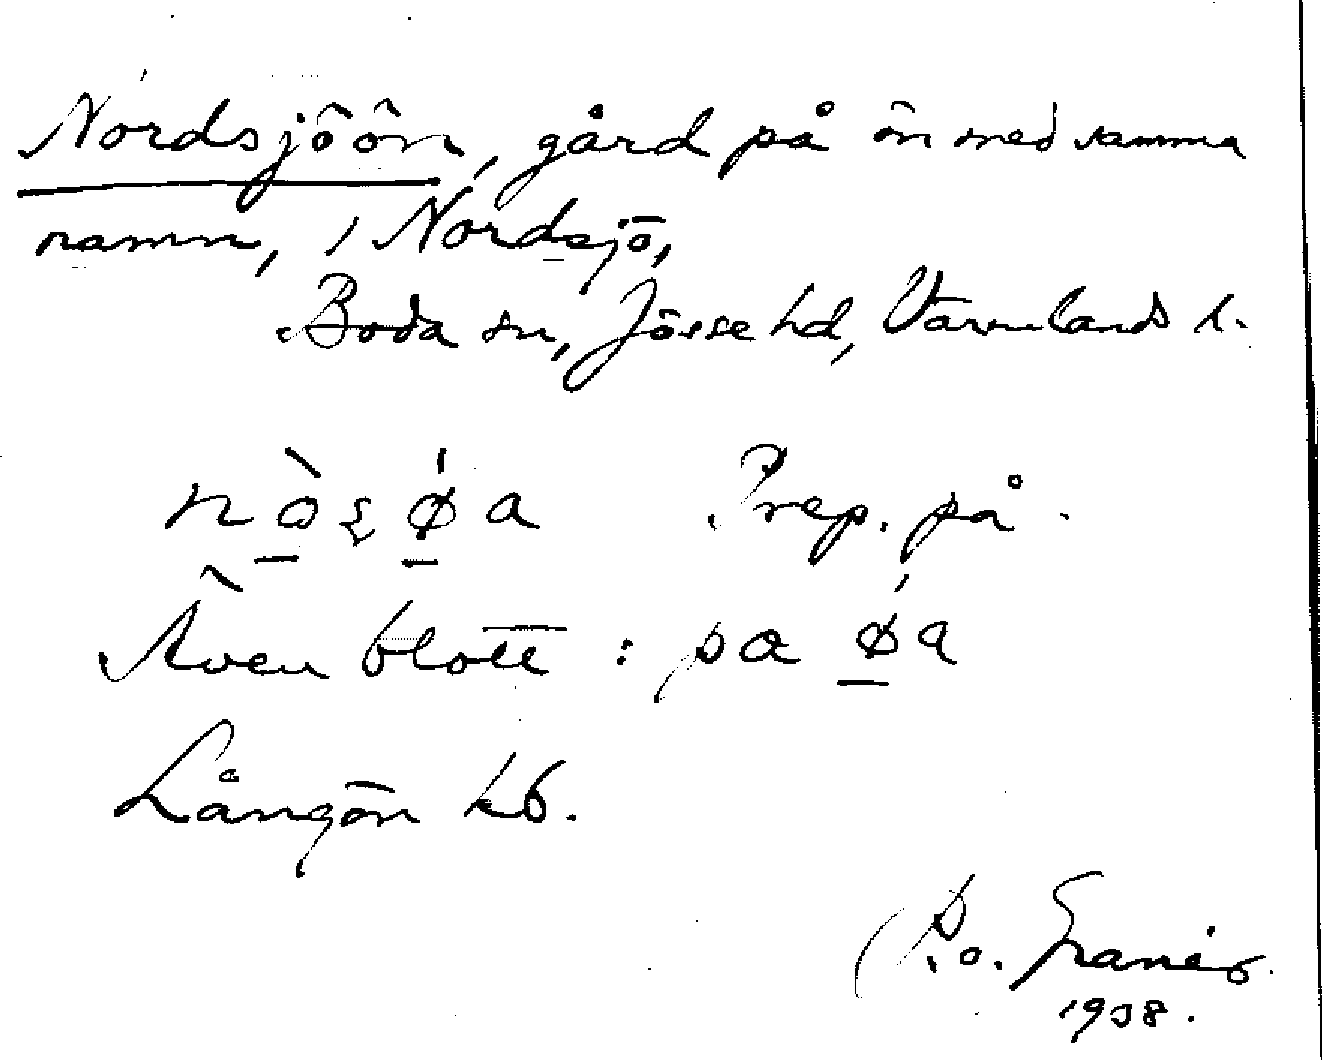 Nordsjöön, gård på ön med samma
namn, i Nordsjö,
Boda sn, Jösse hd, Värmlands l.
nòʂø̀a Prep. på.
Även blott: pa øa
Långön kb.
R.o. Granér
1938.